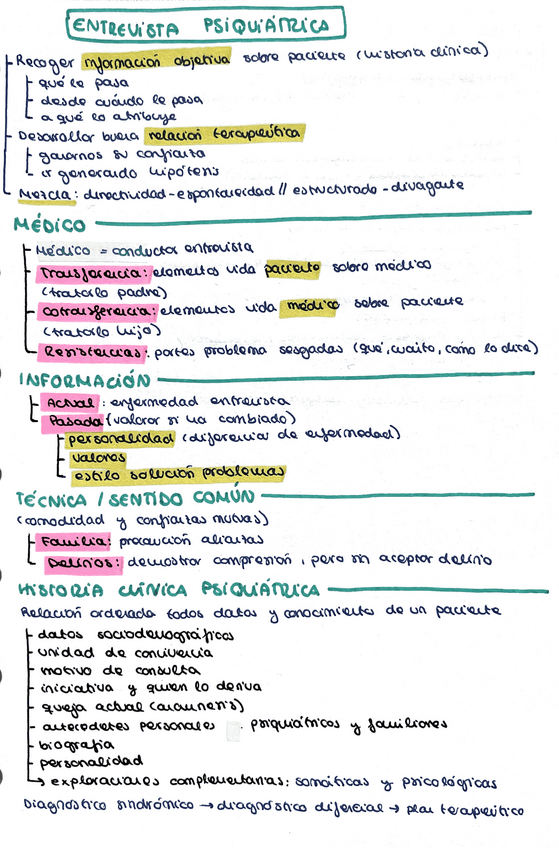 ENTREVISTA PSIQUIÁTRICA
Recoger información objetiva sobre paciente (historia clínica)
qué le pasa
desde cuándo le pasa
a qué lo atribuye
Desarrollar buena relación terapéutica
ganarnos su confianza
ir generando hipótesis
Mezcla: directividad-espontaneidad // estructurado-divagante
MÉDICO
Médico = conductor entrevista
Transferencia: elementos vida paciente sobre médico
(tratarlo padre)
Cotrasferencia: elementos vida médico sobre paciente
(tratarlo hijo)
Resistencias: partes problema sesgadas (qué, cuánto, cómo lo dice)
INFORMACIÓN
Actual: enfermedad entrevista
Pasada (valorar si ha cambiado)
personalidad (diferenciar de enfermedad)
valores
estilo solución problemas
TÉCNICA / SENTIDO COMÚN
(comodidad y confianzas mutuas)
Familia: precaución alianzas
Delirios: demostrar compresión, pero sin aceptar delirio
HISTORIA CLÍNICA PSIQUIÁTRICA
Relación ordenada todos datos y conocimientos de un paciente
datos sociodemográficos
unidad de convivencia
motivo de consulta
iniciativa y quien lo deriva
queja actual (anamnesis)
antecedetes personales . psiquiátricos y familiares
biografía
personalidad
→ exploraciones complementarias: somáticas y psicológicas
Diagnóstico sindrómico → diagnóstico diferencial → plan terapéutico